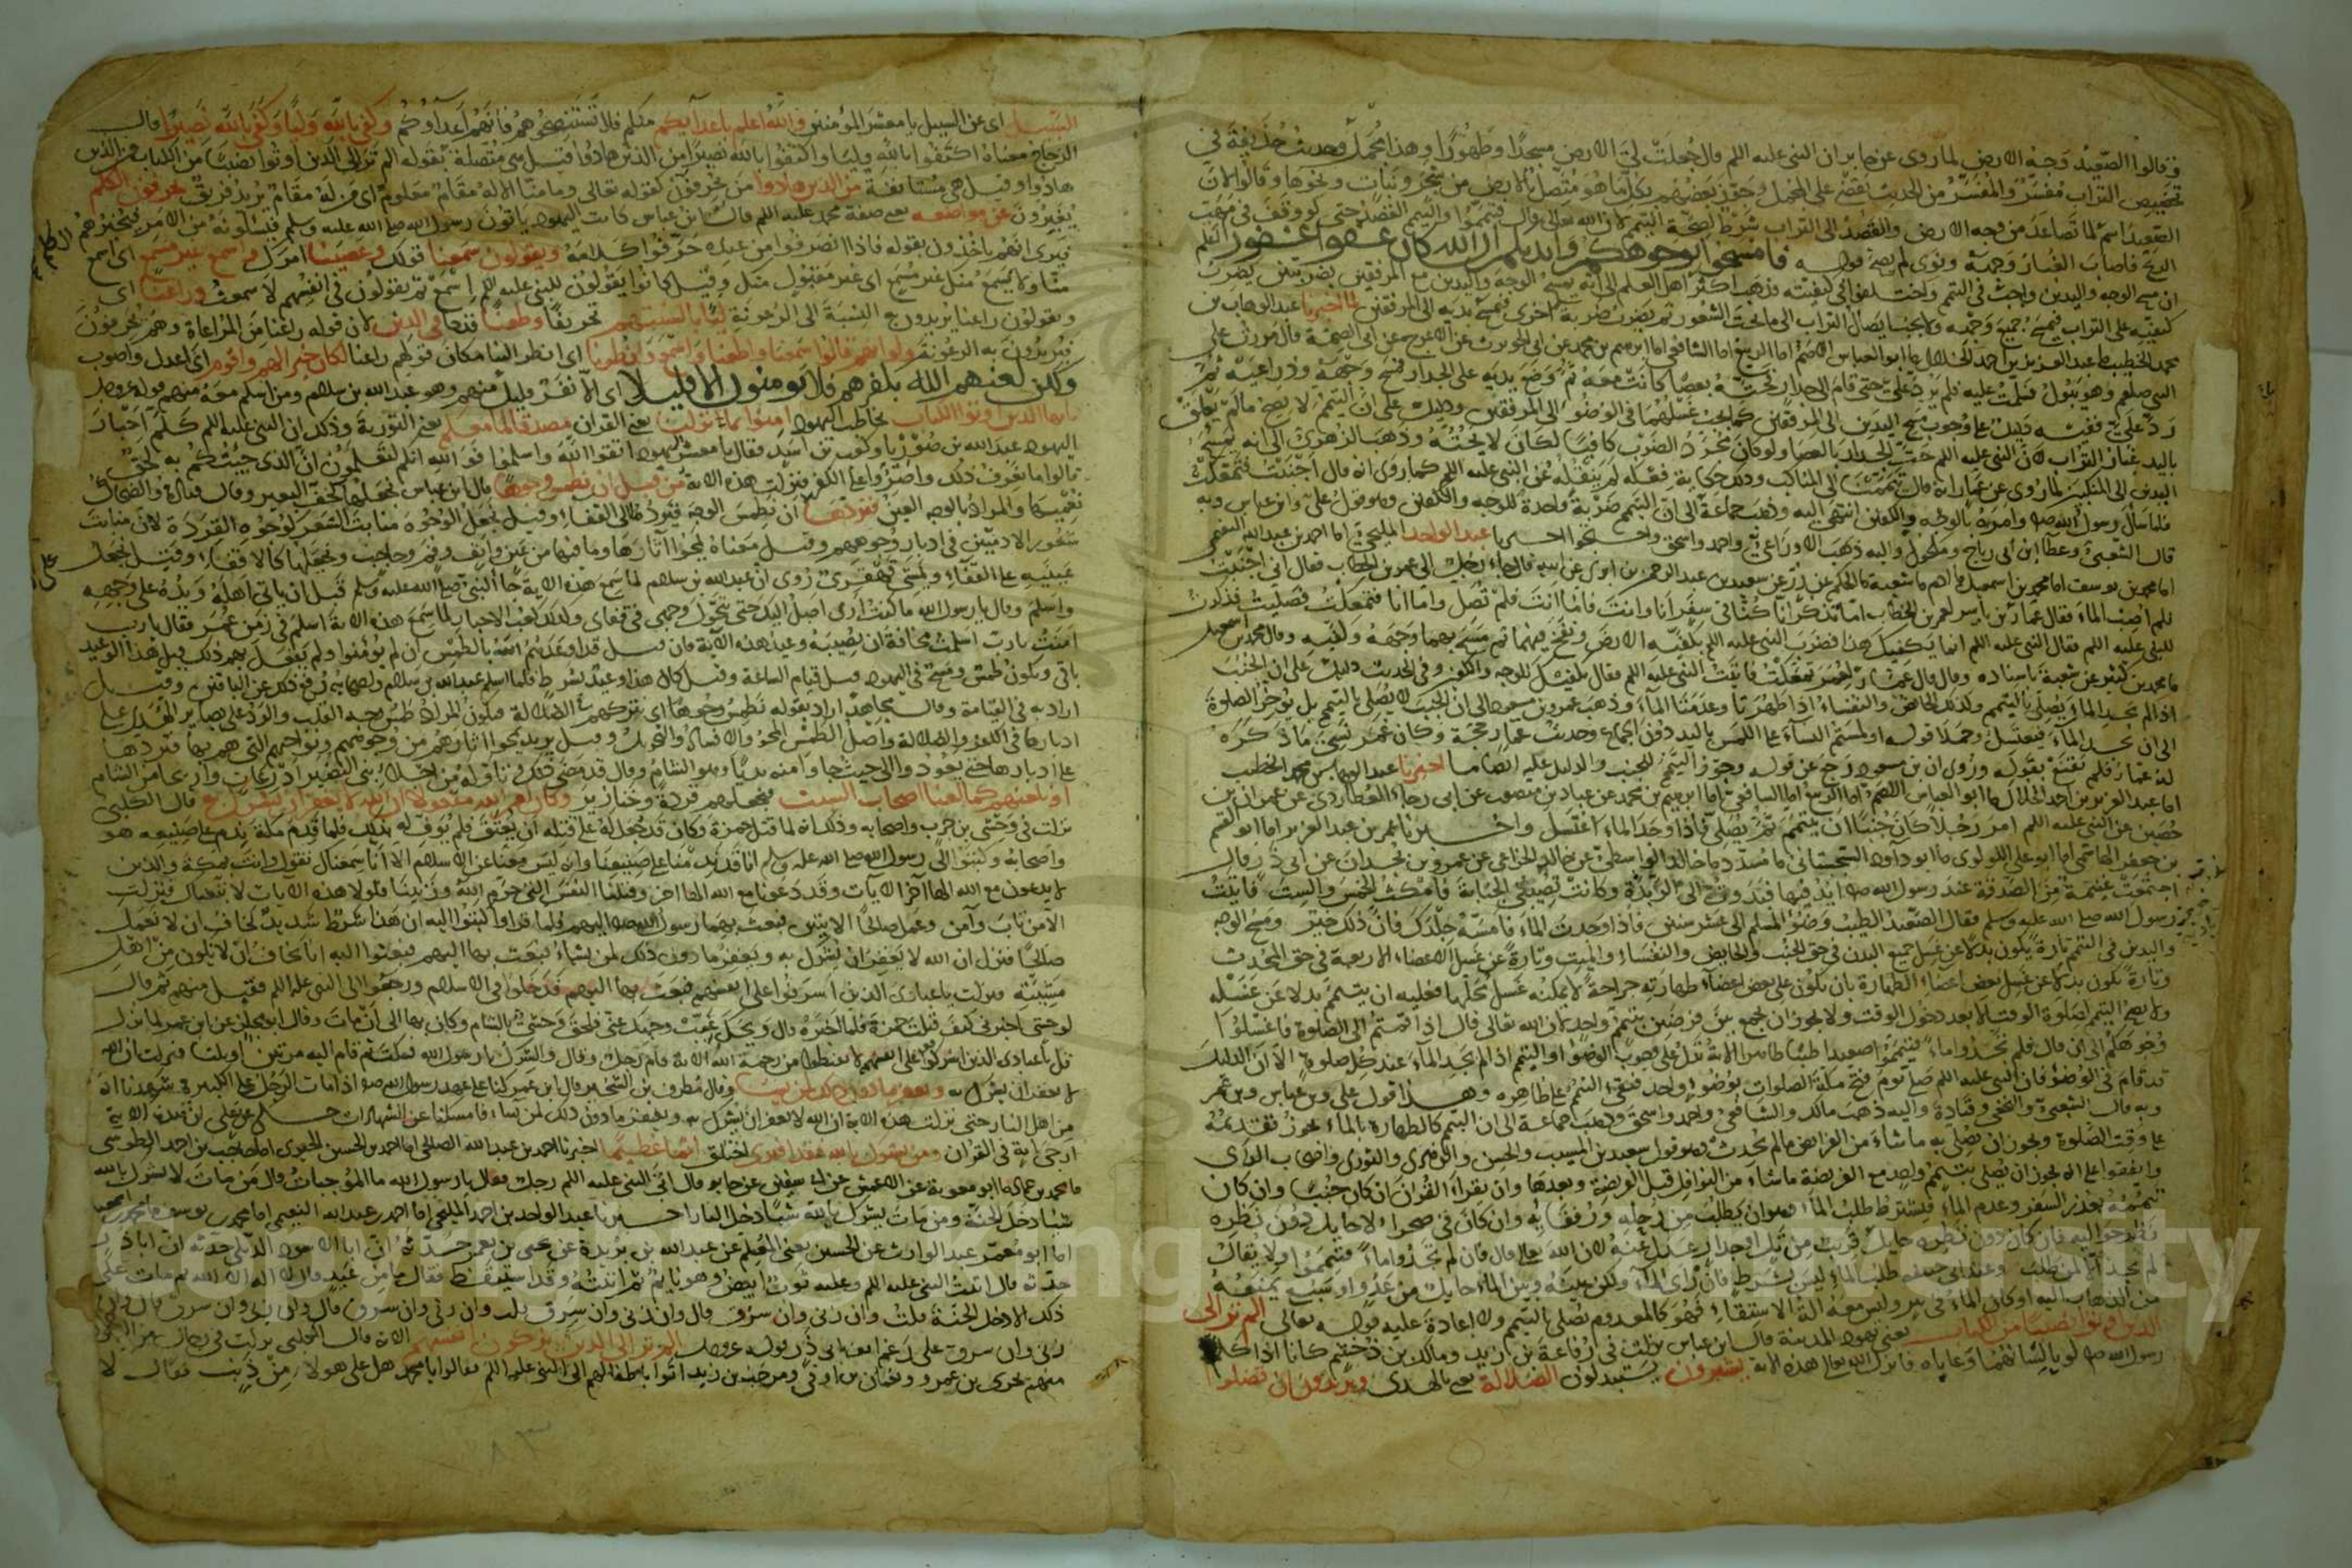 وقالوا الصعيد وجه الارض لما روى عن جابر ان النبي عليه اللم قال جعلت لي الارض مسجدا وطهورا وهذا مجمل وحديث حذيفة في
تخصيص التراب مفسر والمفسر من الحديث يقضي على المجمل وجوز بعضهم بكل ما هو متصل بالارض من شجر ونبات ونحوها وقالوا لان
الصعيد اسم لما تصاعد من وجه الارض والقصد الى التراب شرط لصحة التيمم لان الله تعالى قال فتيمموا والتيمم القصد حتى لو وقف في مهب
الريح فاصاب الغبار وجهه ونوى لم يصح قوله فامسحوا بوجوهكم وايديكم ان الله كان عفوا غفورا اعلم
ان مسح الوجه واليدين واجب في التيمم واختلفوا في كيفيته فذهب اكثر اهل العلم الى انه يمسح الوجه واليدين مع المرفقين بضربتين يضرب
كفيه على التراب فيمسح جميع وجهه ولا يجب ايصال التراب الى ما تحت الشعور ثم يضرب ضربة اخرى فيمسح يديه الى المرفقين لما اخبرنا عبد الوهاب بن
محمد الخطيب عبد العزيز بن احمد الخلال ابو العباس الاصم اما الربيع اما الشافعي اما ابرهيم بن محمد عن ابي الحويرث عن الاعرج عن ابي الصمة قال مررت على
النبي صلعم وهو يبول فسلمت عليه فلم يرد علي حتى قام الى جدار فحته بعصا كانت معه ثم وضع يديه على الجدار فمسح وجهه وذراعيه ثم
رد علي ففيه دليل على وجوب مسح اليدين الى المرفقين كما يجب غسلهما في الوضوء الى المرفقين ودليل على ان التيمم لا يصح ما لم يعلق
باليد غبار التراب لان النبي عليه اللم حت الجدار بالعصا ولو كان مجرد الضرب كافيا لكان لا يحته وذهب الزهري الى انه يمسح
اليدين الى المنكبين لما روى عن عمار انه قال تيممنا الى المناكب وذلك حكاية فعله لم ينقله عن النبي عليه اللم كما روى انه قال اجنبت فتمعكت
فلما سأل رسول الله صلم وامره بالوجه والكفين انتهى اليه وذهب جماعة الى ان التيمم ضربة واحدة للوجه والكفين وهو قول علي وابن عباس وبه
قال الشعبي وعطا ابن ابي رباح ومكحول واليه ذهب الاوزاعي واحمد واسحق واحتجوا اخبرنا عبد الواحد المليحي اما احمد بن عبد الله النعيمي
اما محمد بن يوسف اما محمد بن اسمعيل ادم شعبة الحكم عن ذر عن سعيد بن عبد الرحمن بن ابزى عن ابيه قال جاء رجل الى عمر بن الخطاب فقال اني اجنبت
فلم اصب الماء فقال عمار بن ياسر لعمر بن الخطاب اما تذكر انا كنا في سفر انا وانت فاما انت فلم تصل واما انا فتمعكت فصليت فذكرت
للنبي عليه اللم فقال النبي عليه اللم انما يكفيك هذا فضرب النبي عليه اللم بكفيه الارض ونفخ فيهما ثم مسح بهما وجهه وكفيه وقال محمد بن اسمعيل
محمد بن كثير عن شعبة باسناده وقال قال عمار لعمر تمعكت فاتيت النبي عليه اللم فقال يكفيك الوجه والكفين وفي الحديث دليل على ان الجنب
اذا لم يجد الماء يصلي بالتيمم وكذلك الحائض والنفساء اذا طهرتا وعدمتا الماء وذهب عمر وبن مسعود الى ان الجنب لا يصلي بالتيمم بل يؤخر الصلوة
الى ان يجد الماء فيغتسل وحملا قوله او لمستم النساء على اللمس باليد دون الجماع وحديث عمار حجة وكان عمر نسي ما ذكره
له عمار فلم يقنع بقوله وروى ان بن مسعود رجع عن قوله وجوز التيمم للجنب والدليل عليه ايضا ما اخبرنا عبد الوهاب بن محمد الخطيب
اما عبد العزيز بن احمد الخلال ابو العباس الاصم اما الربيع اما الشافعي اما ابرهيم بن محمد عن عباد بن منصور عن ابي رجاء العطاردي عن عمران بن
حصين عن النبي عليه اللم امر رجلا كان جنبا ان يتيمم ثم يصلي فاذا وجد الماء اغتسل واخبرنا عمر بن عبد العزيز اما ابو القسم
بن جعفر الهاشمي اما ابو علي اللولوي ابو داود السجستاني مسدد خالد الواسطي عن خالد الحذاء عن عمرو بن بجدان عن ابي ذر قال
اجتمعت غنيمة من الصدقة عند رسول الله صلم ابد فيها فبدوت الى الربذة وكانت تصيبني الجنابة فامكث الخمس والست فاتيت
رسول الله صلى الله عليه وسلم فقال الصعيد الطيب وضوء المسلم الى عشر سنين فاذا وجدت الماء فامسه جلدك فان ذلك خير ومسح الوجه
واليدين في التيمم تارة يكون بدلا عن غسل جميع البدن في حق الجنب والحائض والنفساء والميت وتارة عن غسل الاعضاء الاربعة في حق المحدث
وتارة يكون بدلا عن غسل بعض اعضاء الطهارة بان يكون على بعض اعضاء طهارته جراحة لا يمكنه غسل محلها فعليه ان يتيمم بدلا عن غسله
ولا يصح التيمم لصلوة الوقت الا بعد دخول الوقت ولا يجوز ان يجمع بين فرضين بتيمم واحد لان الله تعالى قال اذا قمتم الى الصلوة فاغسلوا
وجوهكم الى ان قال فلم تجدوا ماء فتيمموا صعيدا طيبا ظاهر الاية تدل على وجوب الوضوء او التيمم اذا لم يجد الماء عند كل صلوة الا ان الدليل
قد قام في الوضوء فان النبي عليه اللم صلى يوم فتح مكة الصلوات بوضوء واحد فبقي التيمم على ظاهره وهذا قول علي وبن عباس وبن عمر
وبه قال الشعبي والنخعي وقتادة واليه ذهب مالك والشافعي واحمد واسحق وذهب جماعة الى ان التيمم كالطهارة بالماء يجوز تقديمه
على وقت الصلوة ويجوز ان يصلي به ما شاء من الفرائض ما لم يحدث وهو قول سعيد بن المسيب والحسن والزهري والثوري واصحاب الراي
واتفقوا على انه يجوز ان يصلي بتيمم واحد مع الفريضة ما شاء من النوافل قبل الفريضة وبعدها وان يقرأ القران ان كان جنبا وان كان
تيممه بعذر السفر وعدم الماء فيشترط طلب الماء وهو ان يطلب من رحله ورفقائه وان كان في صحراء لا حايل دون نظره
ينظر حواليه فان كان دون نظره حايل قريب من تل او جدار عدل عنه لان الله تعالى قال فان لم تجدوا ماء فتيمموا ولا يقال
لم يجد الا لمن طلب وعند ابي حنيفة طلب الماء ليس بشرط فان راى الماء ولكن بينه وبين الماء حايل من عدو او سبع يمنعه
من الذهاب اليه او كان الماء في بير وليس معه الة الاستقاء فهو كالمعدوم يصلي بالتيمم ولا اعادة عليه قوله تعالى الم تر الى
الذين اوتوا نصيبا من الكتاب يعني يهود المدينة قال ابن عباس نزلت في رفاعة بن زيد ومالك بن دخشم كانا اذا كلم
رسول الله صلم لويا لسانهما وعاباه فانزل الله تعالى هذه الاية يشترون يستبدلون الضلالة يعني بالهدى ويريدون ان تضلوا
السبيل اي عن السبيل يا معشر المؤمنين والله اعلم باعدائكم منكم فلا تستنصحوهم فانهم اعداؤكم وكفى بالله وليا وكفى بالله نصيرا قال
الزجاج معناه اكتفوا بالله وليا واكتفوا بالله نصيرا من الذين هادوا قيل هي متصلة بقوله الم تر الى الذين اوتوا نصيبا من الكتاب من الذين
هادوا وقيل هي مستانفة من الذين هادوا من يحرفون كقوله تعالى وما منا الا له مقام معلوم اي من له مقام يريد فريق يحرفون الكلم
يغيرون عن مواضعه يعني صفة محمد عليه اللم قال ابن عباس كانت اليهود ياتون رسول الله صلى الله عليه وسلم فيسئلونه عن الامر فيخبرهم
فيرى انهم ياخذون بقوله فاذا انصرفوا من عنده حرفوا كلامه ويقولون سمعنا قولك وعصينا امرك واسمع غير مسمع اي اسمع
منا ولا يسمع منك غير مسمع اي غير مقبول منك وقيل كانوا يقولون للنبي عليه اللم اسمع ثم يقولون في انفسهم لا سمعت وراعنا اي
ويقولون راعنا يريدون به النسبة الى الرعونة ليا بالسنتهم تحريفا وطعنا قدحا في الدين لان قوله راعنا من المراعاة وهم يحرفون
فيريدون به الرعونة ولو انهم قالوا سمعنا واطعنا واسمع وانظرنا اي انظر الينا مكان قولهم راعنا لكان خيرا لهم واقوم اي اعدل واصوب
ولكن لعنهم الله بكفرهم فلا يؤمنون الا قليلا اي الا نفر قليل منهم وهو عبد الله بن سلام ومن اسلم معه منهم قوله عز وجل
يايها الذين اوتوا الكتاب يخاطب اليهود امنوا بما نزلنا يعني القران مصدقا لما معكم يعني التورية وذلك ان النبي عليه اللم كلم احبار
اليهود عبد الله بن صوريا وكعب بن اسد فقال يا معشر اليهود اتقوا الله واسلموا فوالله انكم لتعلمون ان الذي جئتكم به لحق
قالوا ما نعرف ذلك واصروا على الكفر فنزلت هذه الاية من قبل ان نطمس وجوها قال ابن عباس نجعلها كخف البعير وقال قتادة والضحاك
نعميها والمراد بالوجه العين فنردها ان نطمس الوجه فيرد الى القفا وقيل نجعل الوجوه منابت الشعر كوجوه القردة لان منابت
شعور الادميين في ادبار وجوههم وقيل معناه نمحوا اثارها وما فيها من عين وانف وفم وحاجب ونجعلها كالاقفاء وقيل نجعل
عينيه على القفا ويمشي قهقرى روى ان عبد الله بن سلام لما سمع هذه الاية جا النبي صلى الله عليه وسلم قبل ان ياتي اهله ويده على وجهه
واسلم وقال يا رسول الله ما كنت ارى اصل اليك حتى يتحول وجهي في قفاي وكذلك كعب الاحبار لما سمع هذه الاية اسلم في زمن عمر فقال يا رب
امنت يا رب اسلمت مخافة ان يصيبه وعيد هذه الاية فان قيل قد اوعدهم الله بالطمس ان لم يؤمنوا ولم يفعل بهم ذلك قيل هذا الوعيد
باقي ويكون طمس ومسخ في اليهود قبل قيام الساعة وقيل كان هذا وعيد بشرط فلما اسلم عبد الله بن سلام واصحابه رفع ذلك عن الباقين وقيل
اراد به في القيامة وقال مجاهد اراد بقوله نطمس وجوها اي نتركهم في الضلالة فيكون المراد طمس وجه القلب والرد على بصاير الهدى على
ادبارها في الكفر والضلالة واصل الطمس المحو والافساد والتحويل وقيل يريد نمحوا اثارهم من وجوههم ونواحيهم التي هم بها فنردها
على ادبارها حتى يعود والى حيث جاوا منه بديا وهو الشام وقال قد مضى ذلك وتاوله من اجلاء بني النضير الى اذرعات واريحا من الشام
او نلعنهم كما لعنا اصحاب السبت فنجعلهم قردة وخنازير وكان امر الله مفعولا ان الله لا يغفر ان يشرك به قال الكلبي
نزلت في وحشي بن حرب واصحابه وذلك انه لما قتل حمزة وكان قد جعل له على قتله ان يعتق فلم يوف له بذلك فلما قدم مكة ندم على صنيعه هو
واصحابه وكتبوا الى رسول الله صلى الله عليه وسلم انا قد ندمنا على صنيعنا وانه ليس يمنعنا عن الاسلام الا انا سمعناك تقول وانت بمكة والذين
لا يدعون مع الله الها اخر الآيات وقد دعونا مع الله الها اخر وقتلنا النفس التي حرم الله وزنينا فلولا هذه الايات لاتبعناك فنزلت
الا من تاب وآمن وعمل صالحا الايتين فبعث بهما رسول الله صلم اليهم فلما قراوا كتبوا اليه ان هذا شرط شديد نخاف ان لا نعمل
صالحا فنزل ان الله لا يغفر ان يشرك به ويغفر ما دون ذلك لمن يشاء فبعث بها اليهم فبعثوا اليه انا نخاف ان لا نكون من اهل
مشيته فنزلت يا عبادي الذين اسرفوا على انفسهم فبعث بها اليهم فدخلوا في الاسلام ورجعوا الى النبي عليه اللم فقبل منهم ثم قال
لوحشي اخبرني كيف قتلت حمزة فلما اخبره قال ويحك غيب وجهك عني فلحق وحشي بالشام وكان بها الى ان مات وقال ابو مجلز عن ابن عمر لما نزل
قل يا عبادي الذين اسرفوا على انفسهم لا تقنطوا من رحمة الله الاية قام رجل وقال والشرك يا رسول الله فسكت ثم قام اليه مرتين او ثلثا فنزلت ان الله
لا يغفر ان يشرك به ويغفر ما دون ذلك لمن يشاء وقال مطرف بن الشخير قال ابن عمر كنا على عهد رسول الله صلم اذا مات الرجل على الكبيرة شهدنا انه
من اهل النار حتى نزلت هذه الاية ان الله لا يغفر ان يشرك به ويغفر ما دون ذلك لمن يشاء فامسكنا عن الشهادات
ارجى آية في القران ومن يشرك بالله فقد افترى اختلق اثما عظيما اخبرنا احمد بن عبد الله الصالحي اما احمد بن الحسن الحيري اما حاجب بن احمد الطوسي
محمد بن حماد ابو معوية عن الاعمش عن ابي سفين عن جابر قال اتى النبي عليه اللم رجل فقال يا رسول الله ما الموجبات قال من مات لا يشرك بالله
شيئا دخل الجنة ومن مات يشرك بالله شيئا دخل النار اخبرنا عبد الواحد بن احمد المليحي اما احمد بن عبد الله النعيمي اما محمد بن يوسف
اما ابو معمر عبد الوارث عن الحسين يعني المعلم عن عبد الله بن بريدة عن يحيى بن يعمر حدثه ان ابا الاسود الديلي حدثه ان ابا ذر
حدثه قال اتيت النبي عليه اللم وعليه ثوب ابيض وهو نايم ثم اتيته وقد استيقظ فقال ما من عبد قال لا اله الا الله ثم مات على
ذلك الا دخل الجنة قلت وان زنى وان سرق قال وان زنى وان سرق قلت وان زنى وان سرق قال وان زنى وان سرق
زنى وان سرق على رغم انف ابي ذر قوله عز وجل الم تر الى الذين يزكون انفسهم الاية قال الكلبي نزلت في رجال من اليهود
منهم بحري بن عمرو ونعمان بن اوفى ومرحب بن زيد اتوا باطفالهم الى النبي عليه اللم فقالوا يا محمد هل على هولاء من ذنب فقال لا